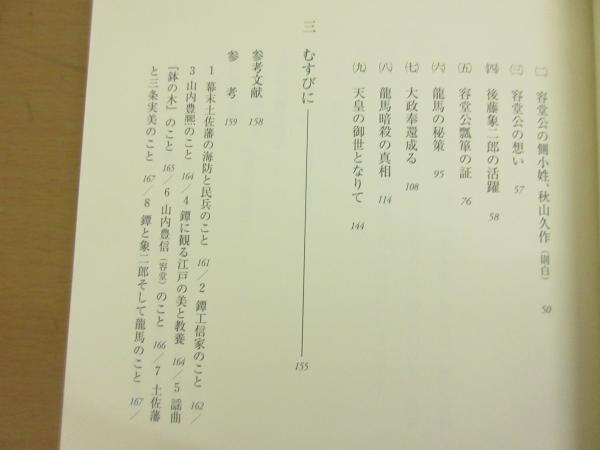 ㈡ 容堂公の側小姓、秋山久作（剛白） 50
㈢ 容堂公の想い 57
㈣ 後藤象二郎の活躍 58
㈤ 容堂公瓢箪の証 76
㈥ 龍馬の秘策 95
㈦ 大政奉還成る 108
㈧ 龍馬暗殺の真相 114
㈨ 天皇の御世となりて 144
三 むすびに 155
参考文献 158
参 考 159
1 幕末土佐藩の海防と民兵のこと 161/2 鐔工信家のこと 162/
3 山内豊熈のこと 164/4 鐔に観る江戸の美と教養 164/5 謡曲
『鉢の木』のこと 165/6 山内豊信（容堂）のこと 166/7 土佐藩
と三条実美のこと 167/8 鐔と象二郎そして龍馬のこと 167/